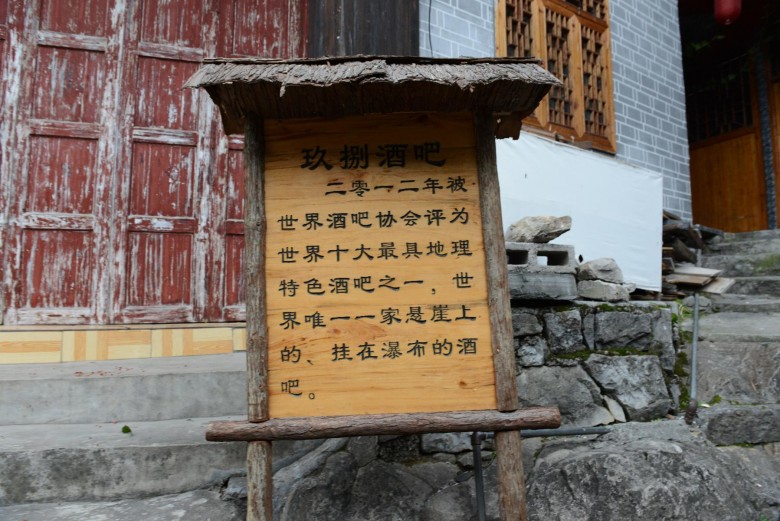 玖捌酒吧
二零一二年被
世界酒吧协会评为
世界十大最具地理
特色酒吧之一，世
界唯一一家悬崖上
的、挂在瀑布的酒
吧。